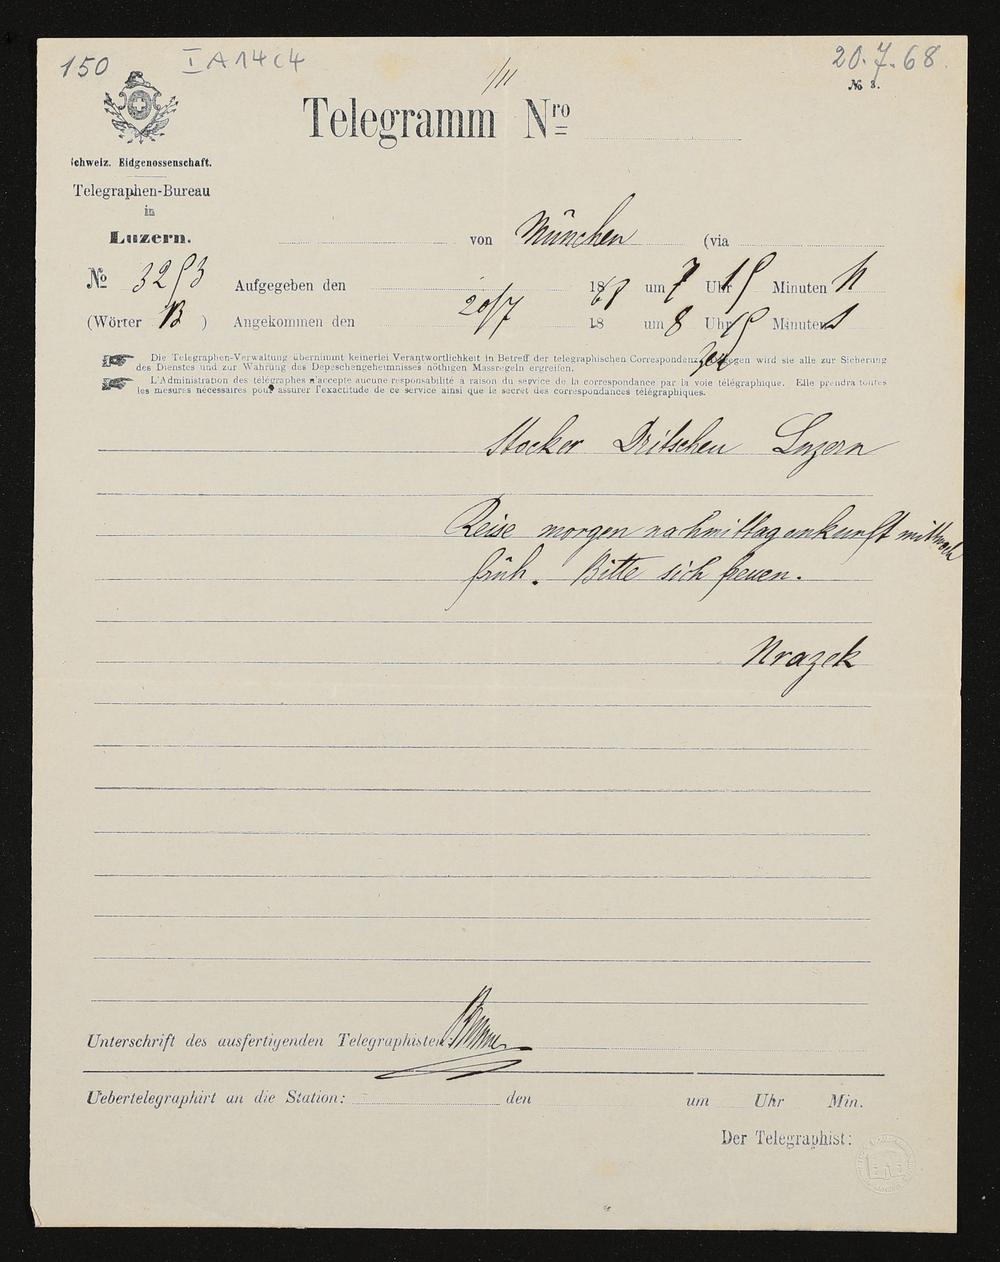 150 I A 14 C 4 20.7.68.
№ 3.
Telegramm Nro
Schweiz. Eidgenossenschaft.
Telegraphen-Bureau
in
Luzern.
von München (via
№ 3253 Aufgegeben den 1868 um 7 Uhr 15 Minuten N
(Wörter 13 ) Angekommen den 20/7 18 um 8 Uhr 15 Minuten
Die Telegraphen-Verwaltung übernimmt keinerlei Verantwortlichkeit in Betreff der telegraphischen Correspondenz, dagegen wird sie alle zur Sicherung
des Dienstes und zur Wahrung des Depeschengeheimnisses nöthigen Massregeln ergreifen.
L'Administration des télégraphes n'accepte aucune responsabilité à raison du service de la correspondance par la voie télégraphique. Elle prendra toutes
les mesures nécessaires pour assurer l'exactitude de ce service ainsi que le secret des correspondances télégraphiques.
Stocker Dritschen Luzern
Reise morgen nachmittag ankunft mittwoch
früh. Bitte sich freuen.
Mrazek
Unterschrift des ausfertigenden Telegraphisten:
Uebertelegraphirt an die Station: den um Uhr Min.
Der Telegraphist: